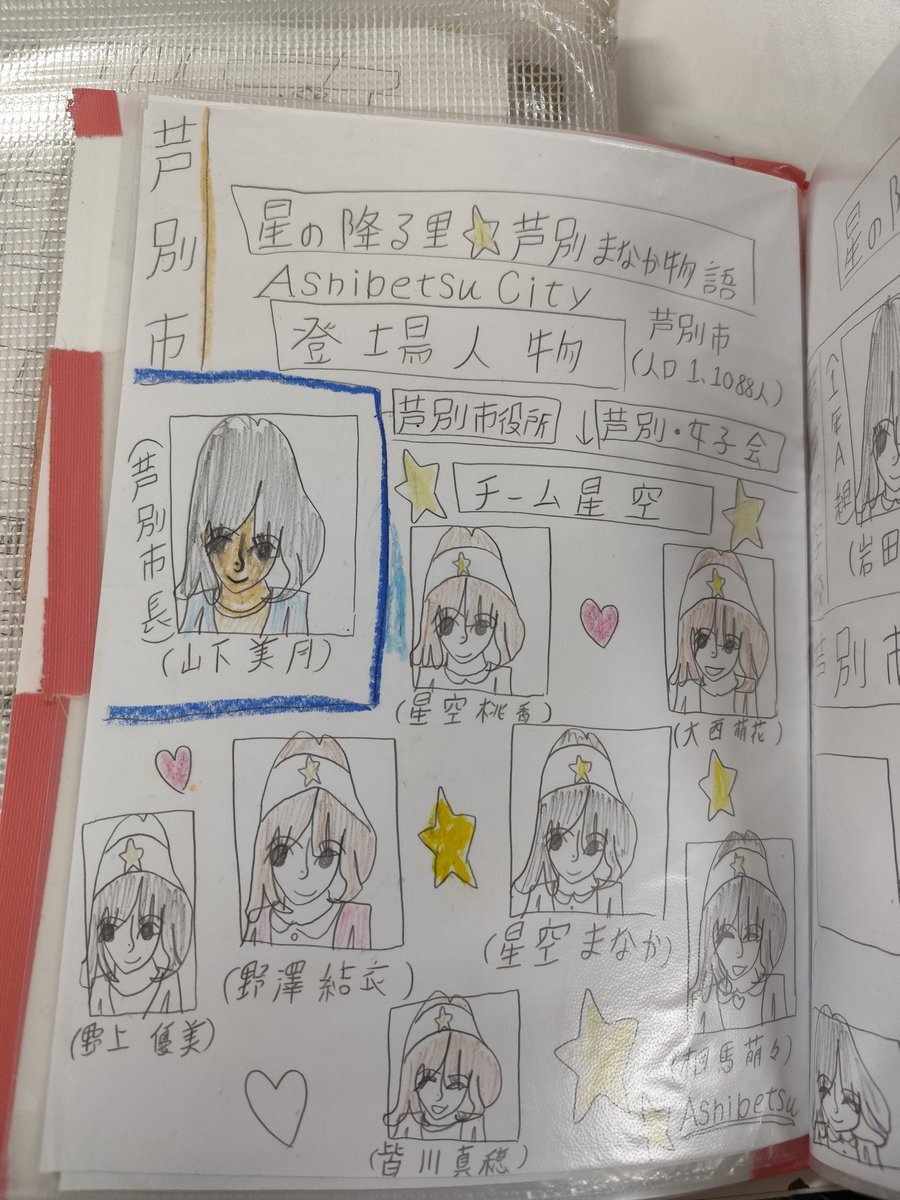 芦別市
星の降る里★芦別まなか物語
Ashibetsu City
登場人物
芦別市
(人口1、1088人)
芦別市役所
↓芦別・女子会
チーム星空
(芦別市長)
(山下美月)
(星空桃香)
(大西萌花)
(野上優美)
(野澤結衣)
(星空まなか)
(相馬萌々)
(皆川真穂)
Ashibetsu
星の
(岩田
芦別市